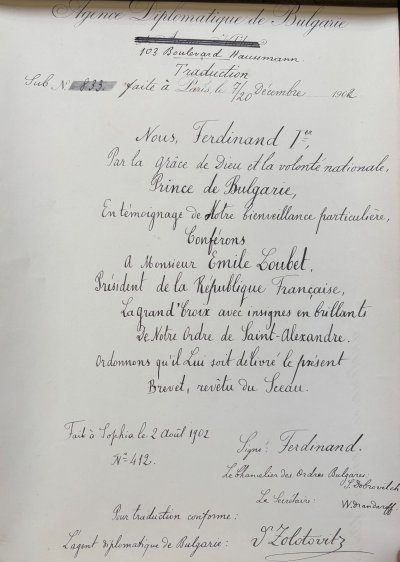 Agence Diplomatique de Bulgarie
103 Boulevard Haussmann.
Traduction
Sub Nº 833. faite à Paris, le 7/20 Décembre 1902
Nous, Ferdinand 1er,
Par la grâce de Dieu et la volonté nationale,
Prince de Bulgarie,
En témoignage de Notre bienveillance particulière,
Conférons
A Monsieur Emile Loubet,
Président de la République Française,
La grand'Croix avec insignes en brillants
De Notre Ordre de Saint-Alexandre.
Ordonnons qu'il Lui soit délivré le présent
Brevet, revêtu du Sceau.
Fait à Sophia le 2 Août 1902
Signé: Ferdinand.
Nº 412.
Le Chancelier des Ordres Bulgares:
S. Dobrovitch
Le Secrétaire:
Pour traduction conforme:
L'agent diplomatique de Bulgarie:
Zolotovitz